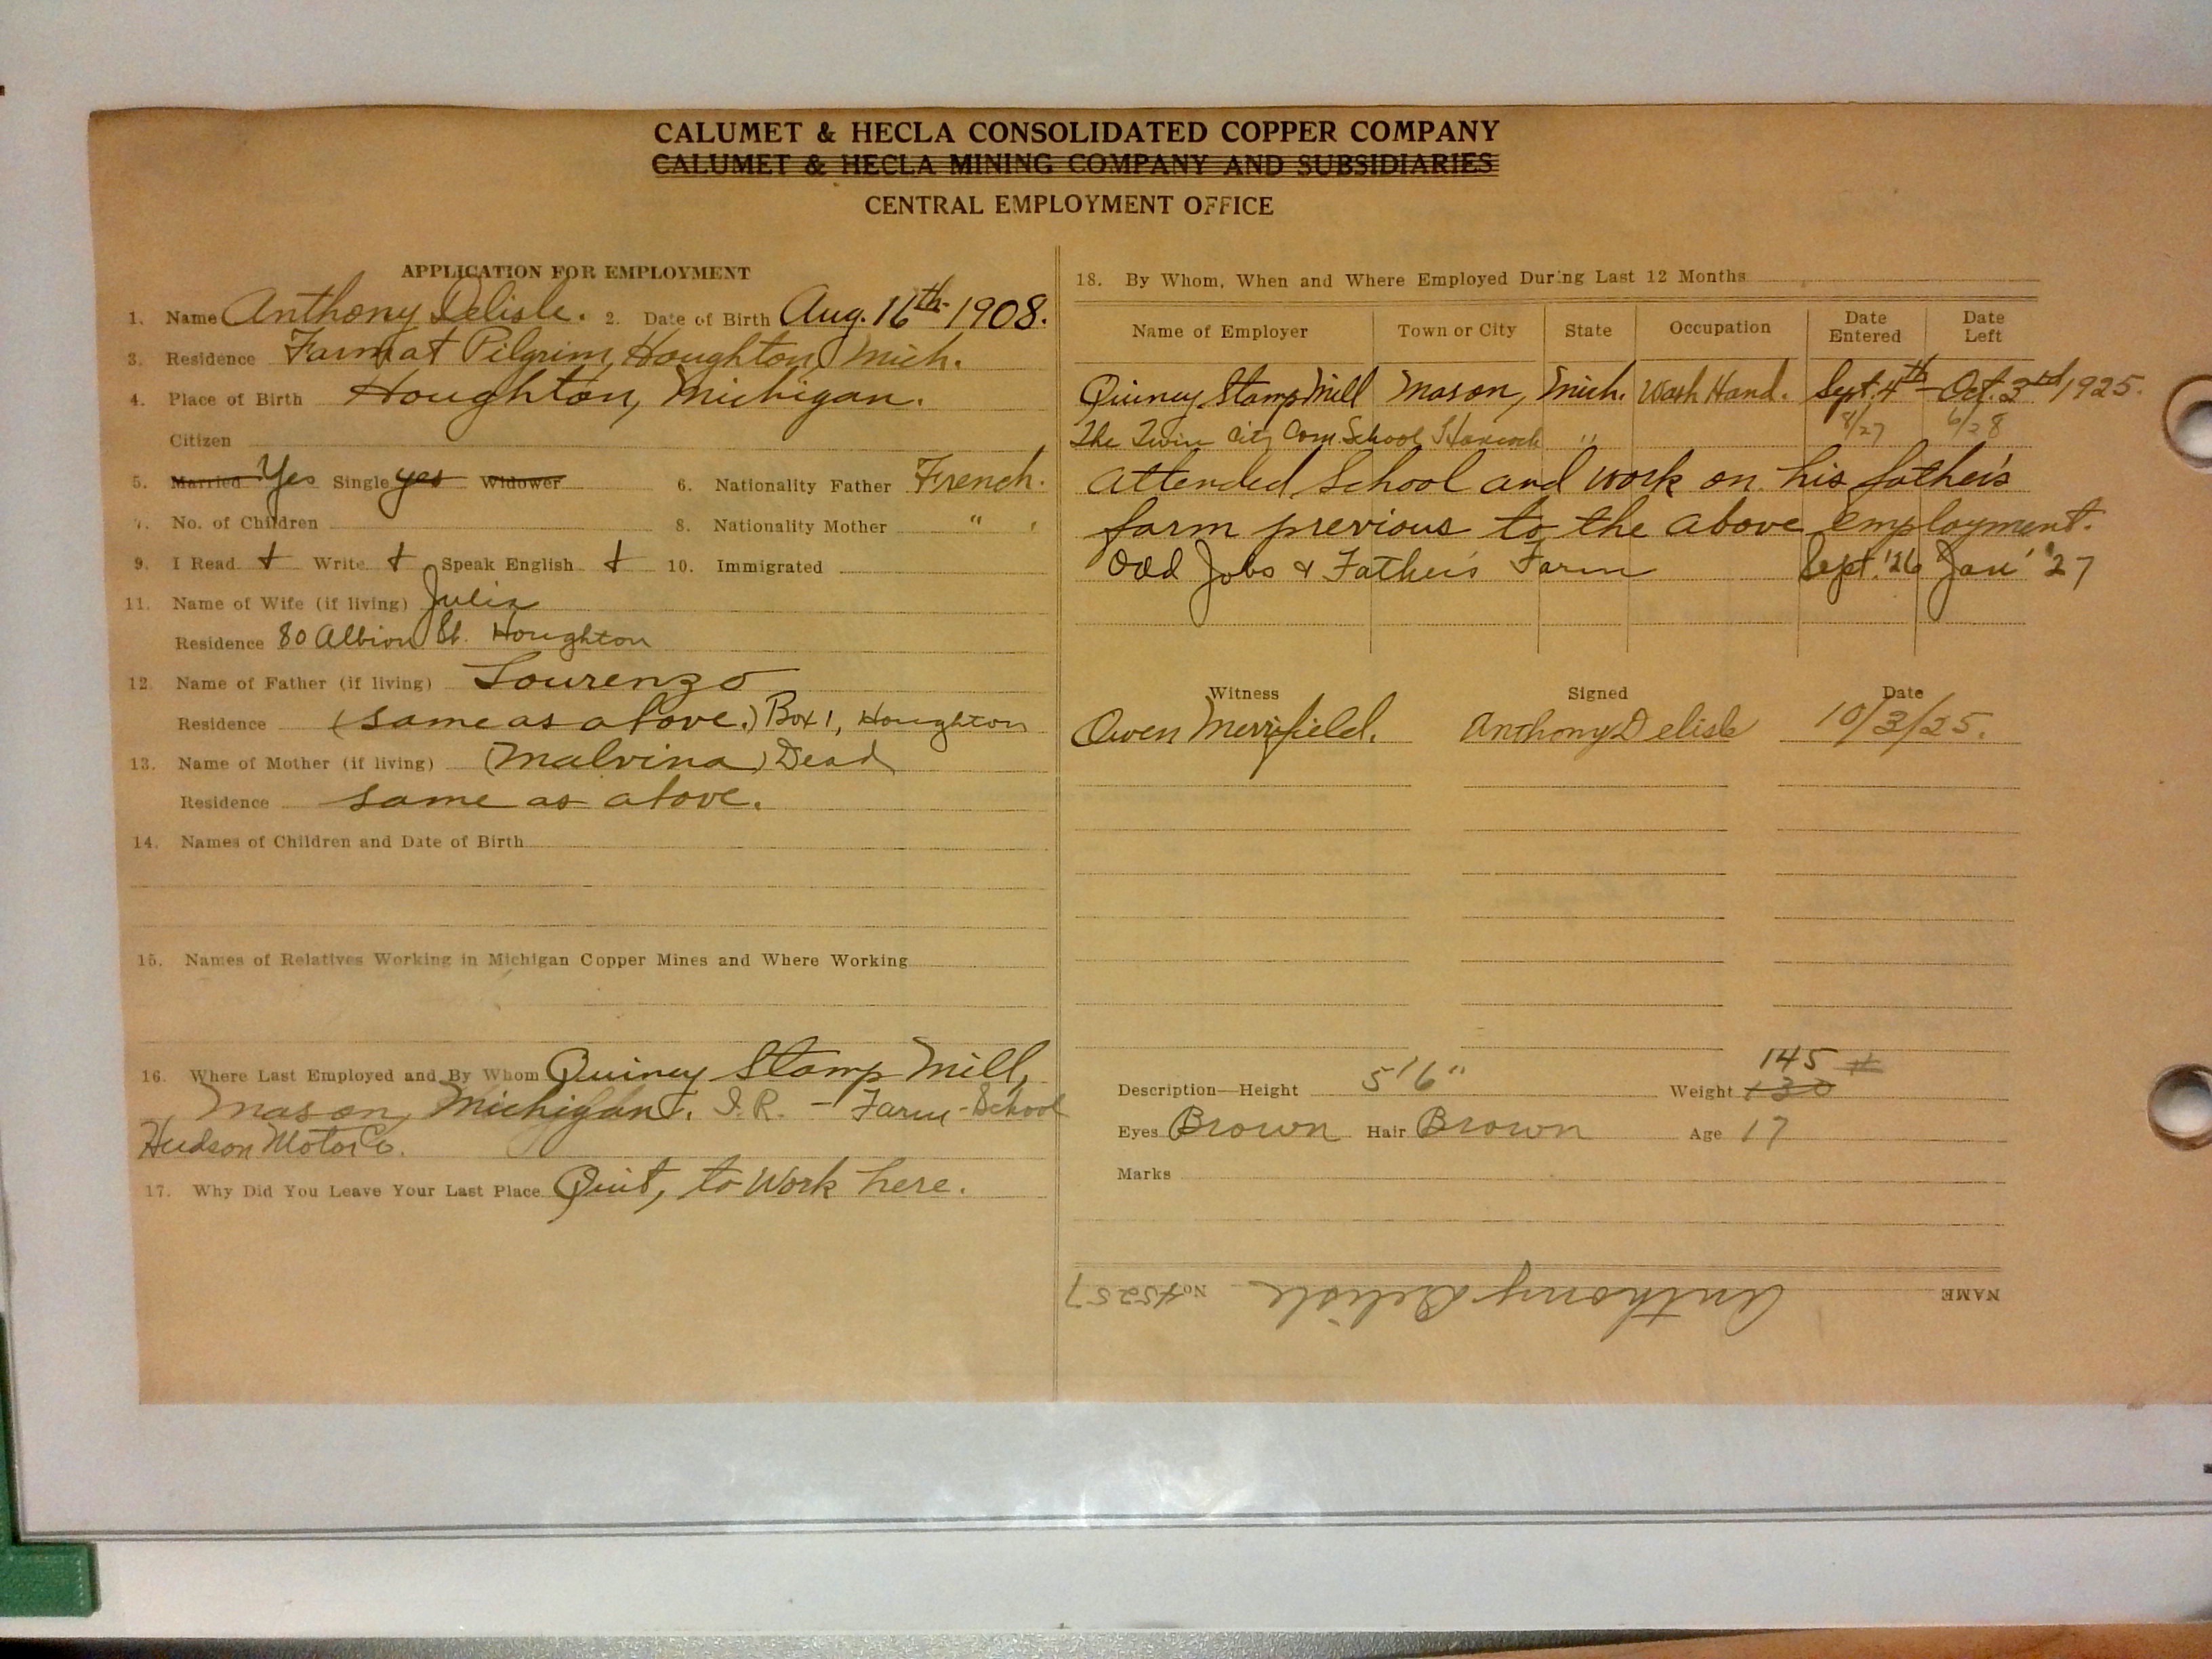 CALUMET & HECLA CONSOLIDATED COPPER COMPANY
CALUMET & HECLA MINING COMPANY AND SUBSIDIARIES
CENTRAL EMPLOYMENT OFFICE
APPLICATION FOR EMPLOYMENT
1. Name Anthony Delisle. 2. Date of Birth Aug. 16th 1908.
3. Residence Farm at Pilgrim, Houghton, Mich.
4. Place of Birth Houghton, Michigan.
Citizen
5. Married Yes Single yes Widower 6. Nationality Father French.
7. No. of Children 8. Nationality Mother " .
9. I Read + Write + Speak English + 10. Immigrated
11. Name of Wife (if living) Julia
Residence 80 Albion St. Houghton
12. Name of Father (if living) Lourenzo
Residence (same as above.) Box 1, Houghton
13. Name of Mother (if living) (Malvina) Dead
Residence same as above.
14. Names of Children and Date of Birth
15. Names of Relatives Working in Michigan Copper Mines and Where Working
16. Where Last Employed and By Whom Quincy Stamp Mill,
Mason, Michigan. I.R. - Farm - School
Hudson Motor Co.
17. Why Did You Leave Your Last Place Quit, to work here.
18. By Whom, When and Where Employed During Last 12 Months
Name of Employer Town or City State Occupation Date Entered Date Left
Quincy Stamp Mill Mason, Mich. Wash Hand. Sept. 4th - Oct. 3rd, 1925.
The Twin City Com. School Hancock " 8/27 6/28
attended school and work on his father's
farm previous to the above employment.
Odd Jobs & Father's Farm Sept. '26 Jan' '27
Witness Signed Date
Owen Merrifield. Anthony Delisle 10/3/25.
145 #
Description—Height 5'6" Weight 130
Eyes Brown Hair Brown Age 17
Marks
NAME Anthony Delisle No. 45257